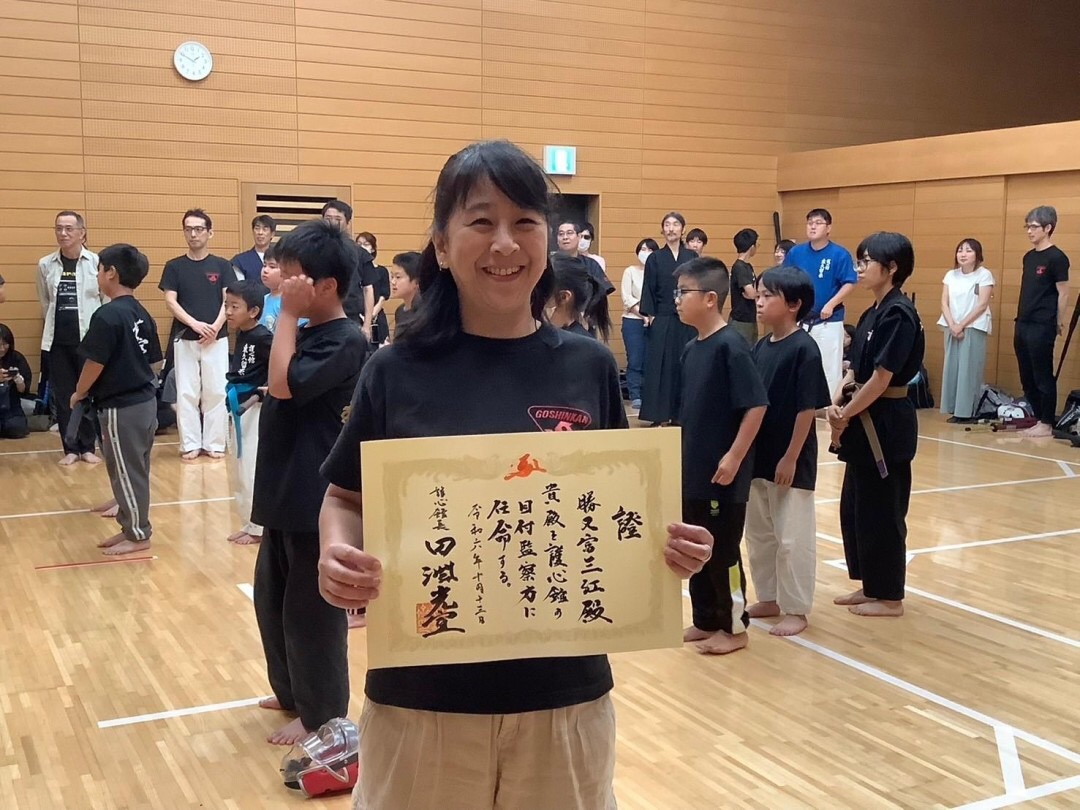 證
勝又富三江殿
貴殿を護心館の
目付監察方に
任命する。
令和六年十月十三日
護心館長
GOSHINKAN